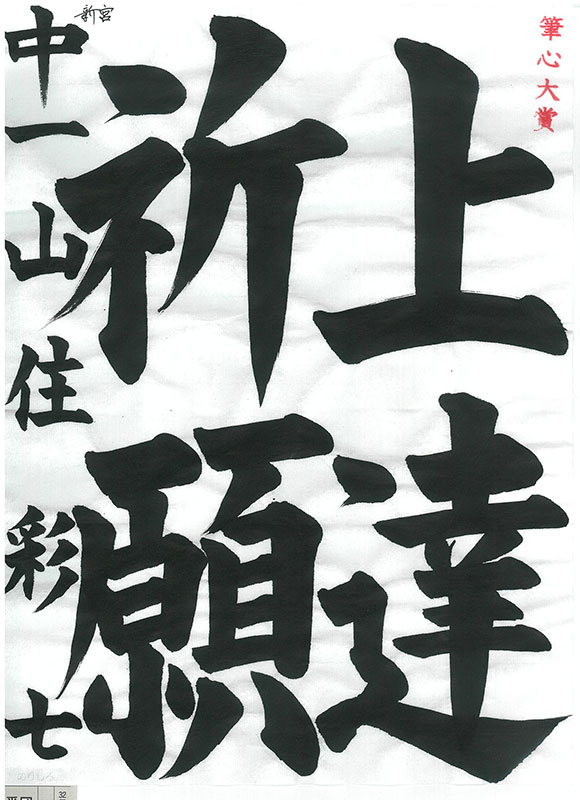 筆心大賞
上達
祈願
中一山住彩七
新宮